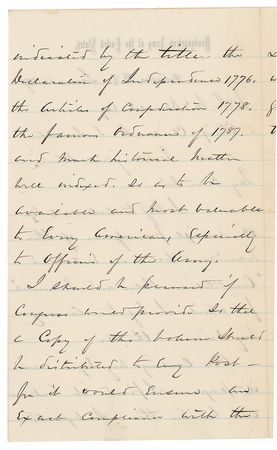 indicated by the title, the
Declaration of Independence 1776.
the Articles of Confederation 1778.
the famous Ordinance of 1787.
and much historical matter
well indexed. So as to be
available and most valuable
to Every American, Especially
to Officers of the Army.
I should be pleased if
Congress would provide so that
a Copy of this volume should
be distributed to Every Post
for it would Ensure an
Exact Compliance with the